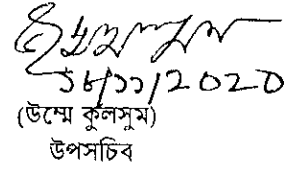 ১৮/১১/2020
(উম্মে কুলসুম)
উপসচিব